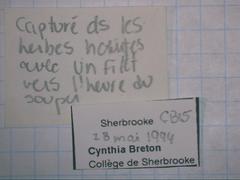 Capturé ds les
herbes hautes
avec un filet
vers l'heure du
souper
Sherbrooke
28 mai 1994
Cynthia Breton
Collège de Sherbrooke